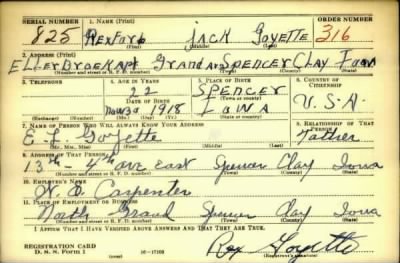 SERIAL NUMBER 1. NAME (Print) ORDER NUMBER
825 Rexford JACK Goyette 316
(First) (Middle) (Last)
2. ADDRESS (Print)
Eller Broek Apt Grand Av SPENCER CLAY Iowa
(Number and street or R. F. D. number) (Town) (County) (State)
3. TELEPHONE 4. AGE IN YEARS 5. PLACE OF BIRTH 6. COUNTRY OF CITIZENSHIP
22 SPENCER
DATE OF BIRTH (Town or county)
Nov 30 1918 IOWA U.S.A.
(Exchange) (Number) (Mo.) (Day) (Yr.) (State or country)
7. NAME OF PERSON WHO WILL ALWAYS KNOW YOUR ADDRESS 8. RELATIONSHIP OF THAT PERSON
E. L. Goyette Father
(Mr., Mrs., Miss) (First) (Middle) (Last)
9. ADDRESS OF THAT PERSON
13th 4th ave East Spencer Clay Iowa
(Number and street or R. F. D. number) (Town) (County) (State)
10. EMPLOYER'S NAME
Carpenter
11. PLACE OF EMPLOYMENT OR BUSINESS
North Grand Spencer Clay Iowa
(Number and street or R. F. D. number) (Town) (County) (State)
I AFFIRM THAT I HAVE VERIFIED ABOVE ANSWERS AND THAT THEY ARE TRUE.
REGISTRATION CARD
D. S. S. Form 1 16—17105 Rex Goyette
(Registrant's signature)